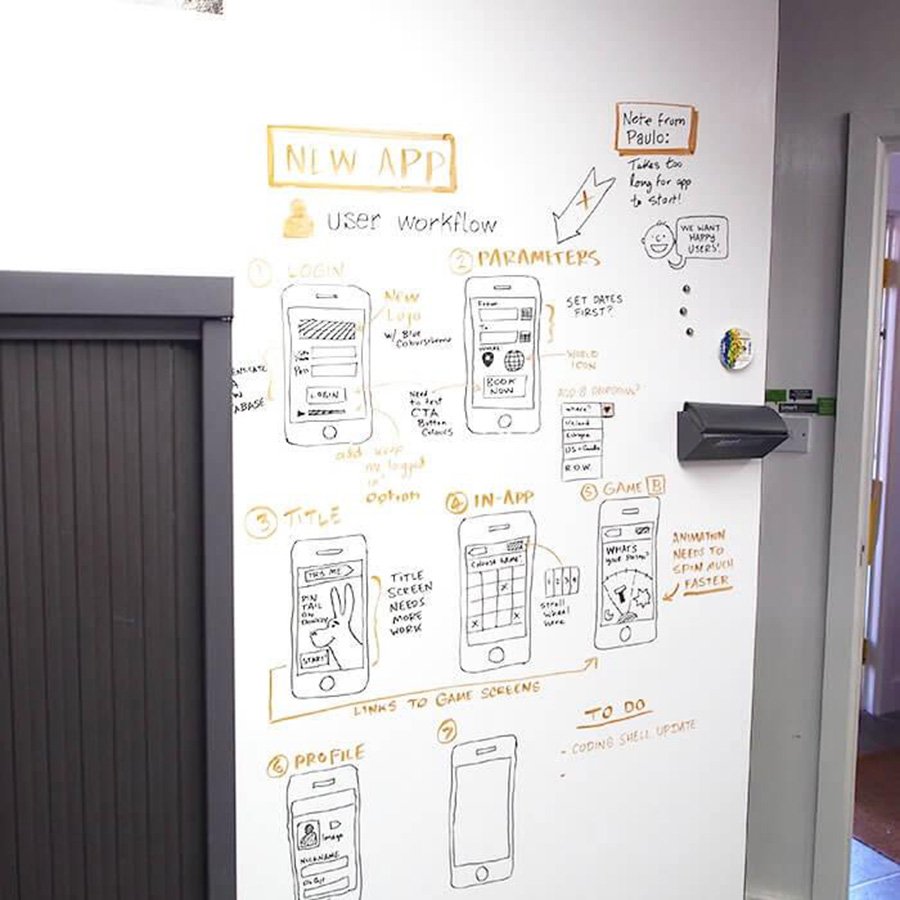 NEW APP
user workflow
Note from
Paulo:
Takes too
long for app
to start!
WE WANT
HAPPY
USERS!
1 LOGIN
NEW
Logo
w/ Blue
Colourscheme
Pass
LOGIN
ABASE
Need
to test
CTA
Button
Colours
option
2 PARAMETERS
From
To
BOOK
NOW
SET DATES
FIRST?
WORLD
ICON
ADD A DROPDOWN?
where?
Iceland
Europe
US + Canada
R.O.W.
3 TITLE
TRY ME
PIN
TAIL
ON
DONKEY
START!
TITLE
SCREEN
NEEDS
MORE
WORK
4 IN-APP
Choose Name!
X
X
X
1 2 3 4
Scroll
wheel
here
5 GAME B
WHATS
your
ANIMATION
NEEDS TO
SPIN MUCH
FASTER
LINKS TO GAME SCREENS
TO DO
- CODING SHELL UPDATE
-
6 PROFILE
Image
NICKNAME
7